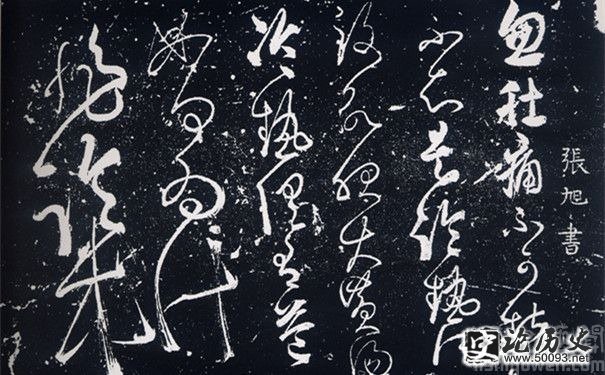 張旭書
忽肚痛不可堪
不知是冷熱所
致欲服大黄湯
冷熱俱有益
如何為計
非臨床
论历史
www.50093.net